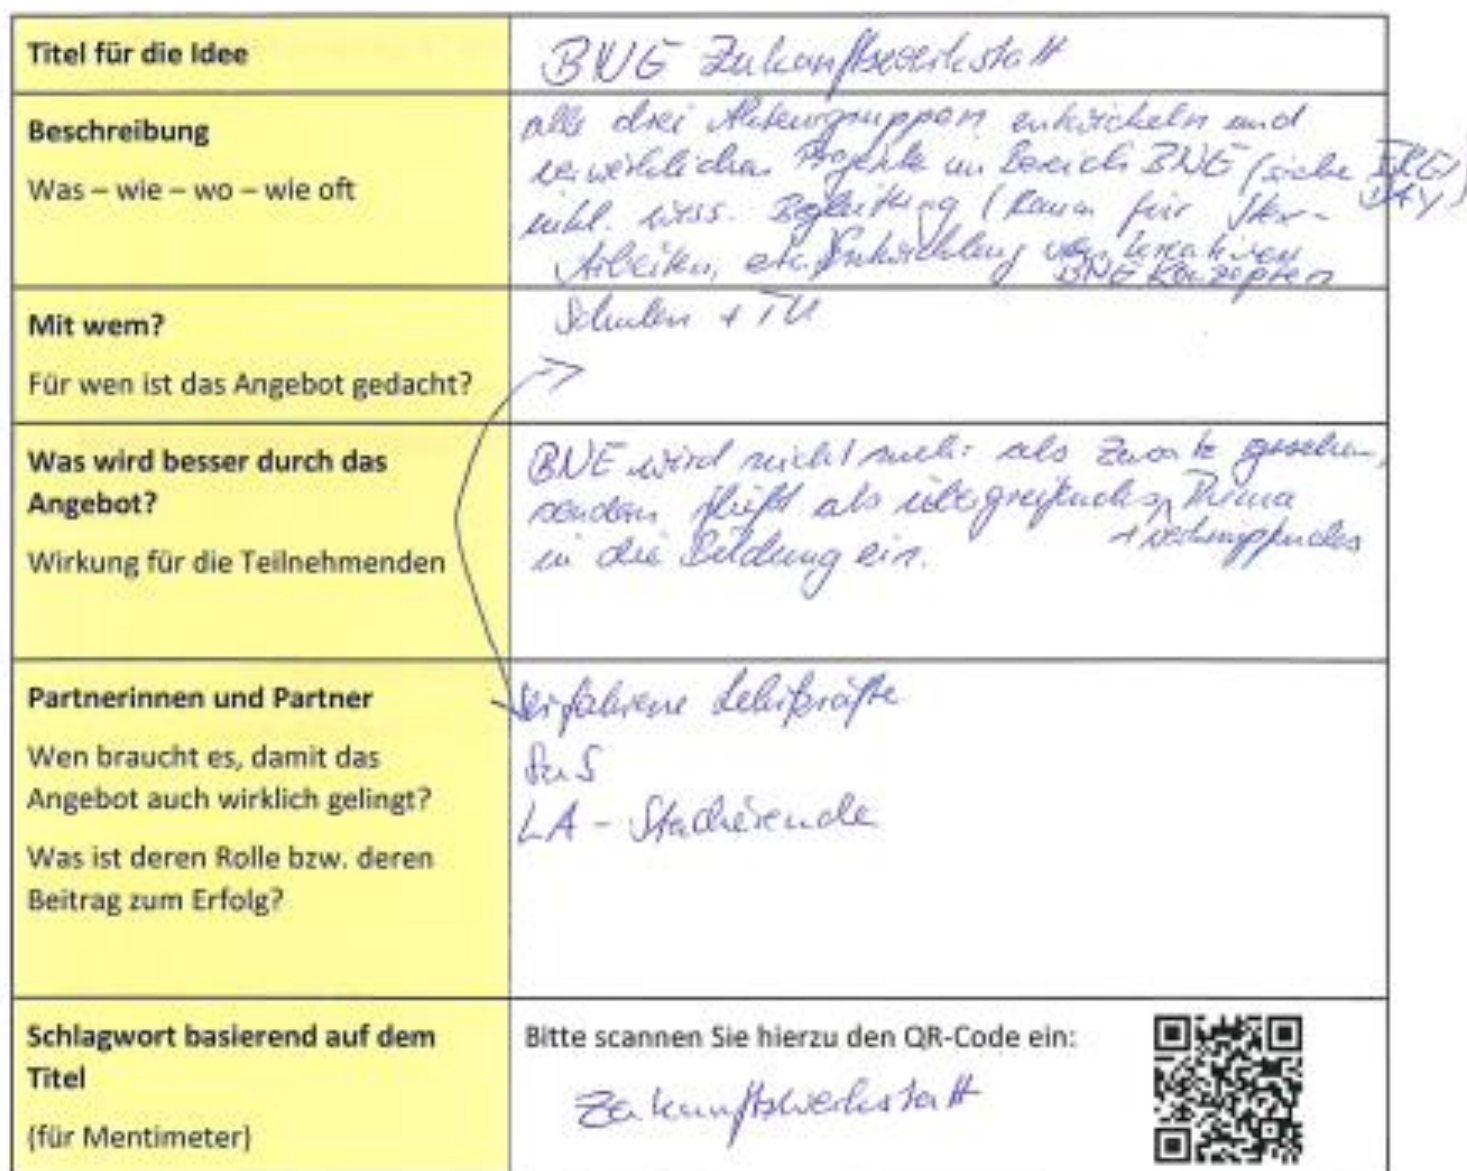 Titel für die Idee
BNE Zukunftswerkstatt
Beschreibung
Was – wie – wo – wie oft
alle drei Akteursgruppen entwickeln und
verwirklichen Projekte im Bereich BNE (siehe DAY)
inkl. wiss. Begleitung (Raum für
Arbeiten, etc. Entwicklung von kreativen
BNE Konzepten
Mit wem?
Für wen ist das Angebot gedacht?
Schulen + TU
Was wird besser durch das
Angebot?
Wirkung für die Teilnehmenden
BNE wird nicht mehr als Zusatz gesehen,
sondern fließt als übergreifendes Thema
+ verknüpfendes
in die Bildung ein.
Partnerinnen und Partner
Wen braucht es, damit das
Angebot auch wirklich gelingt?
Was ist deren Rolle bzw. deren
Beitrag zum Erfolg?
erfahrene Lehrkräfte
SuS
LA - Studierende
Schlagwort basierend auf dem
Titel
(für Mentimeter)
Bitte scannen Sie hierzu den QR-Code ein:
Zukunftswerkstatt